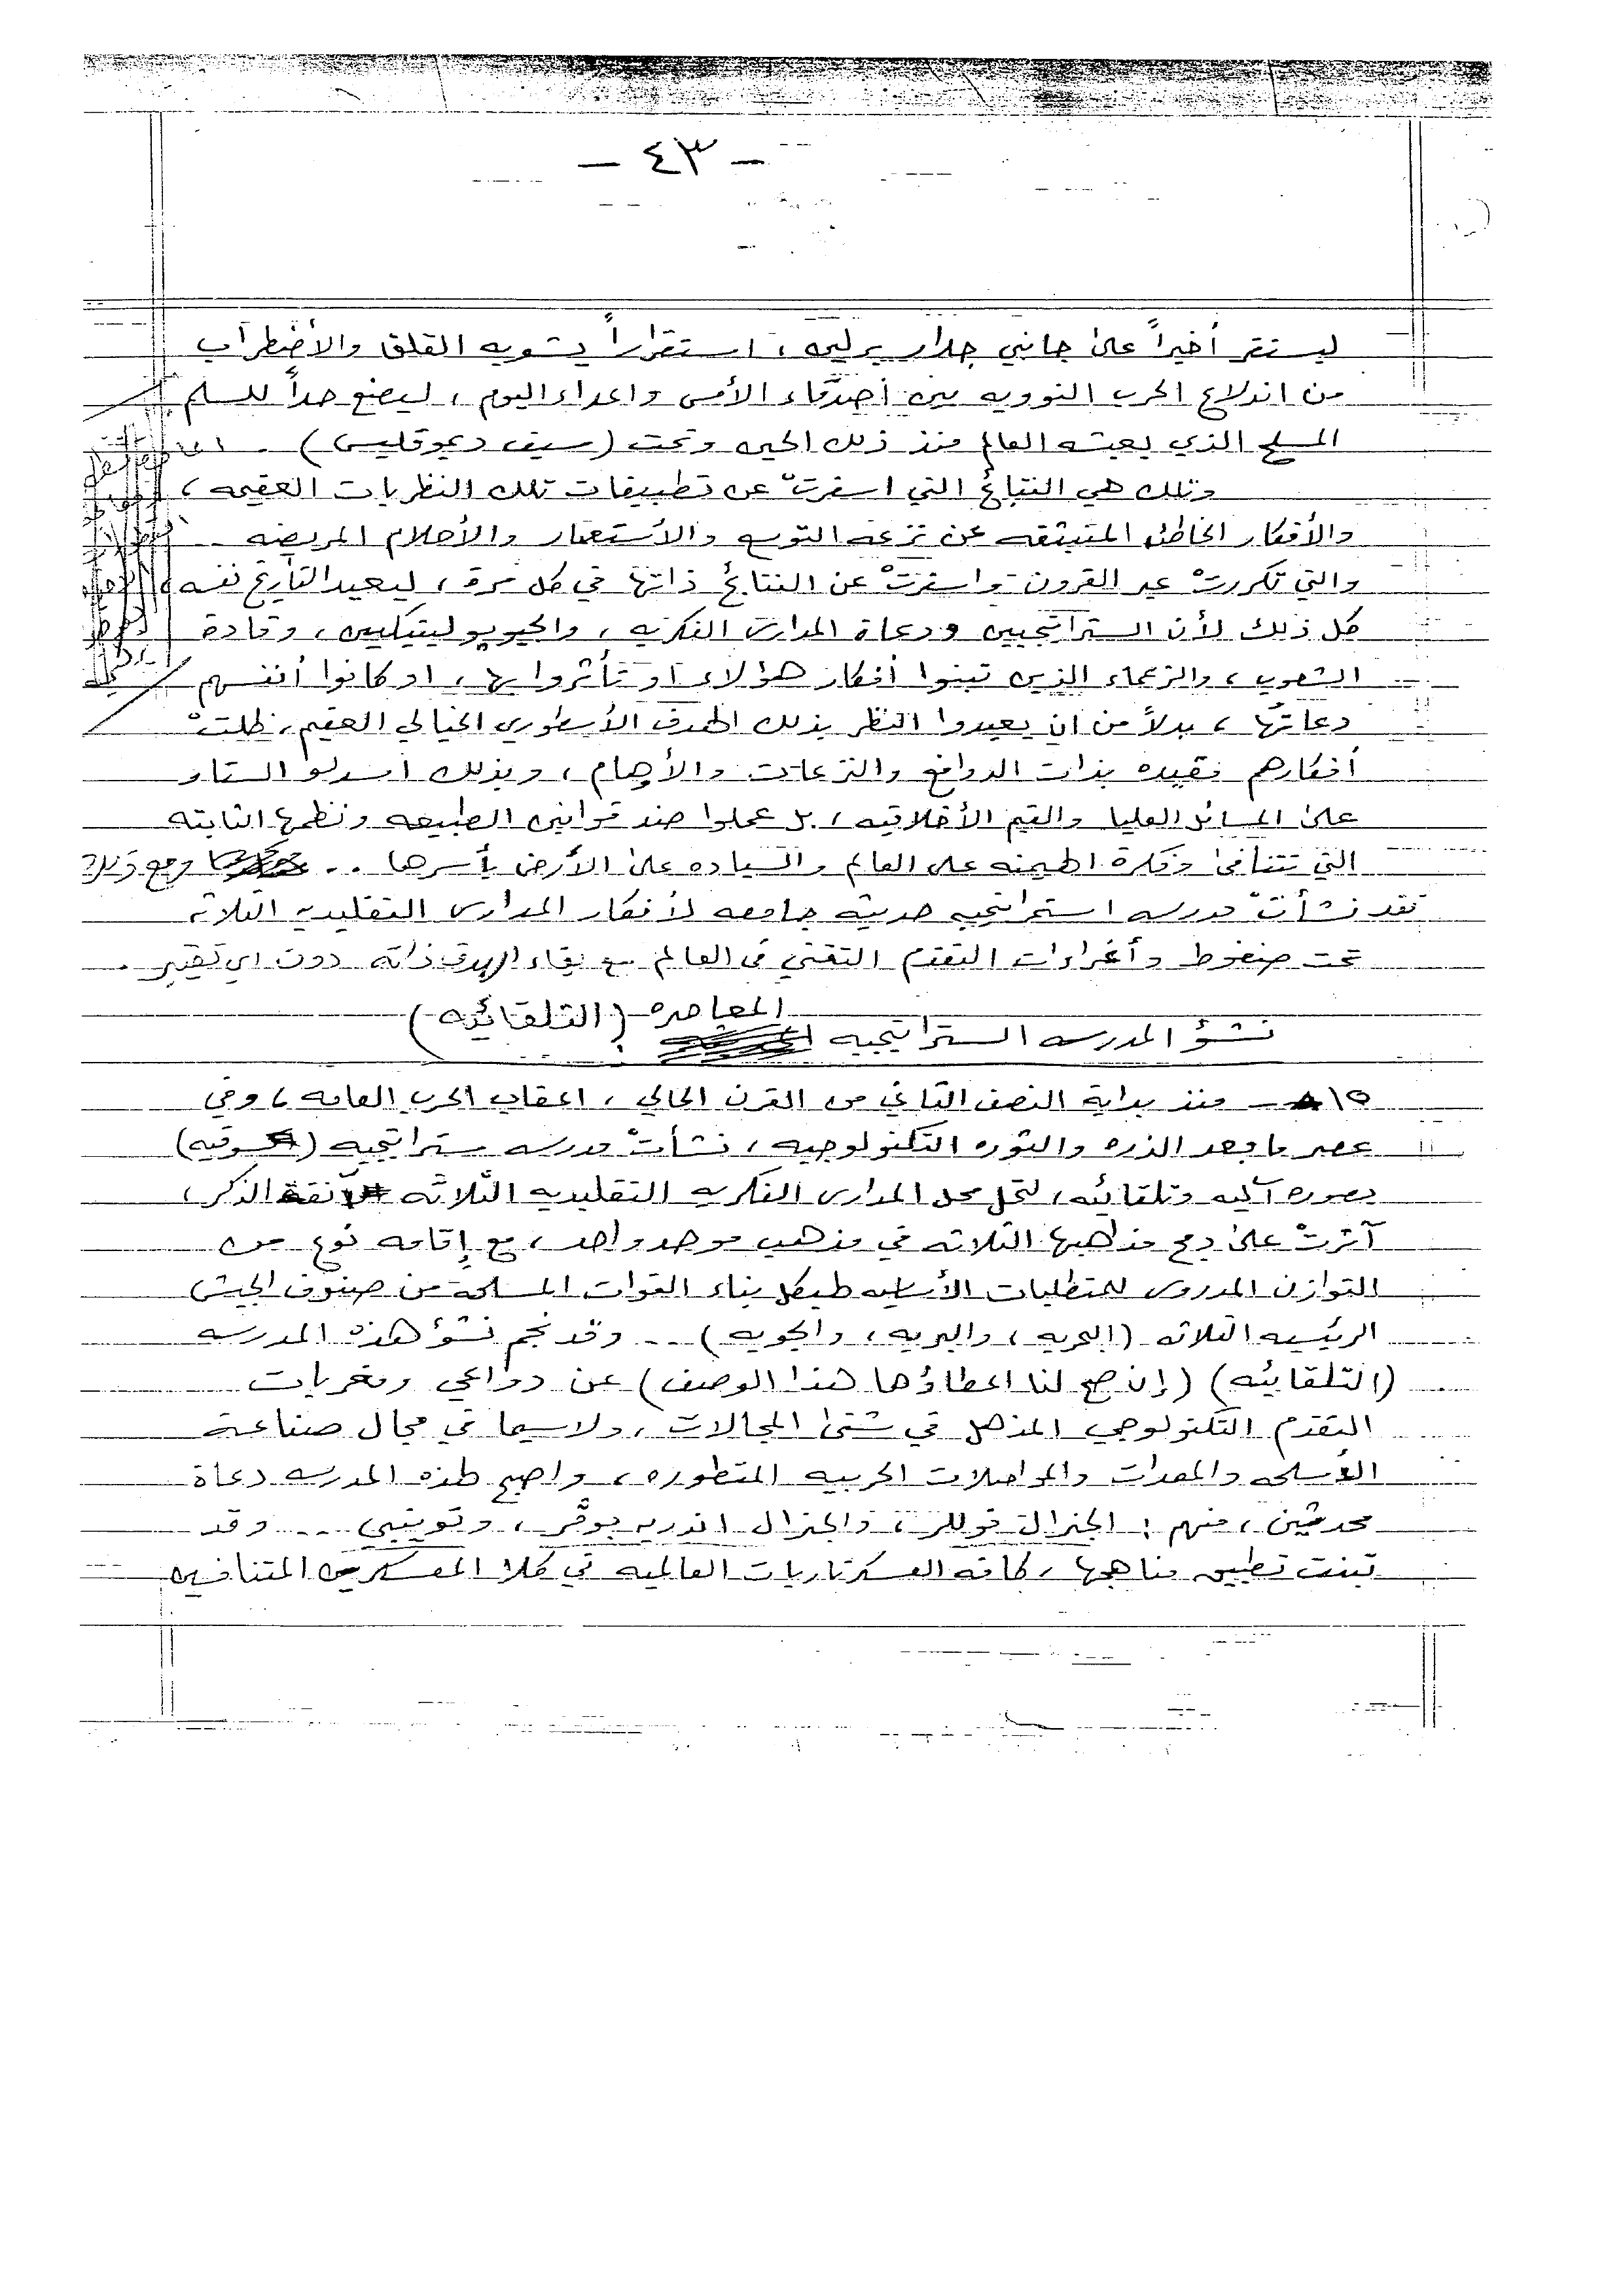 - ٤٣ -
ليستقر أخيراً على جانبي جدار برلين ، استقراراً يشوبه القلق والأضطراب
من اندلاع الحرب النوويه بين أصدقاء الأمس واعداء اليوم ، ليضع حداً للسلم
المسلح الذي يعيشه العالم منذ ذلك الحين وتحت (سيف ديموقليس) .
وتلك هي النتائج التي اسفرتْ عن تطبيقات تلك النظريات العقيمه ،
والأفكار الخاطئه المنبثقه عن نزعة التوسع والأستعمار والأحلام المريضه ..
والتي تكررتْ عبر القرون واسفرتْ عن النتائج ذاتها في كل مرة ، ليعيد التأريخ نفسه ،
كل ذلك لأن الستراتيجيين ودعاة المدارس الفكريه ، والجيوبوليتيكيين ، وقادة
الشعوب ، والزعماء الذين تبنوا أفكار هؤلاء او تأثروا بها ، او كانوا أنفسهم
دعاتها ، بدلاً من ان يعيدوا النظر بذلك الهدف الأسطوري الخيالي العقيم ، ظلتْ
أفكارهم مقيده بذات الدوافع والنزعات والأوهام ، وبذلك اسدلو الستار
على المسائل العليا والقيم الأخلاقيه ، بل عملوا ضد قوانين الطبيعه ونظمها الثابته
التي تتنافى وفكرة الهيمنه على العالم والسياده على الأرض بأسرها .. ومع ذلك
فقد نشأتْ مدرسه استراتيجيه حديثه جامعه لأفكار المدارس التقليديه الثلاثه
تحت ضغوط وأغراءات التقدم التقني في العالم مع بقاء الهدف ذاته دون اي تغيير .
نشؤ المدرسه الستراتيجيه المعاصره (التلقائيه) :
١٥ - منذ بداية النصف الثاني من القرن الحالي ، اعقاب الحرب العامه ، وفي
عصر ما بعد الذره والثوره التكنولوجيه ، نشأتْ مدرسه ستراتيجيه (سوقيه)
بصوره آليه وتلقائيه ، لتحل محل المدارس الفكريه التقليديه الثلاثه آنفة الذكر ،
آثرتْ على دمج مذاهبها الثلاثه في مذهب موحد واحد ، مع إقامه نوع من
التوازن المدروس للمتطلبات الأساسيه لهيكل بناء القوات المسلحة من صنوف الجيش
الرئيسيه الثلاثه (البحريه ، والبريه ، والجويه) ... وقد نجم نشؤ هذه المدرسه
(التلقائيه) (إن صح لنا اعطاؤها هذا الوصف) عن دواعي ومغريات
التقدم التكنولوجي المذهل في شتى المجالات ، ولاسيما في مجال صناعة
الأسلحه والمعدات والمواصلات الحربيه المتطوره ، واصبح لهذه المدرسه دعاة
محدثين ، منهم : الجنرال فوللر ، والجنرال اندريه بوفر ، وتوينبي ... وقد
تبنت تطبيق مناهجها ، كافه العسكرتاريات العالميه في كلا المعسكرين المتنافسين